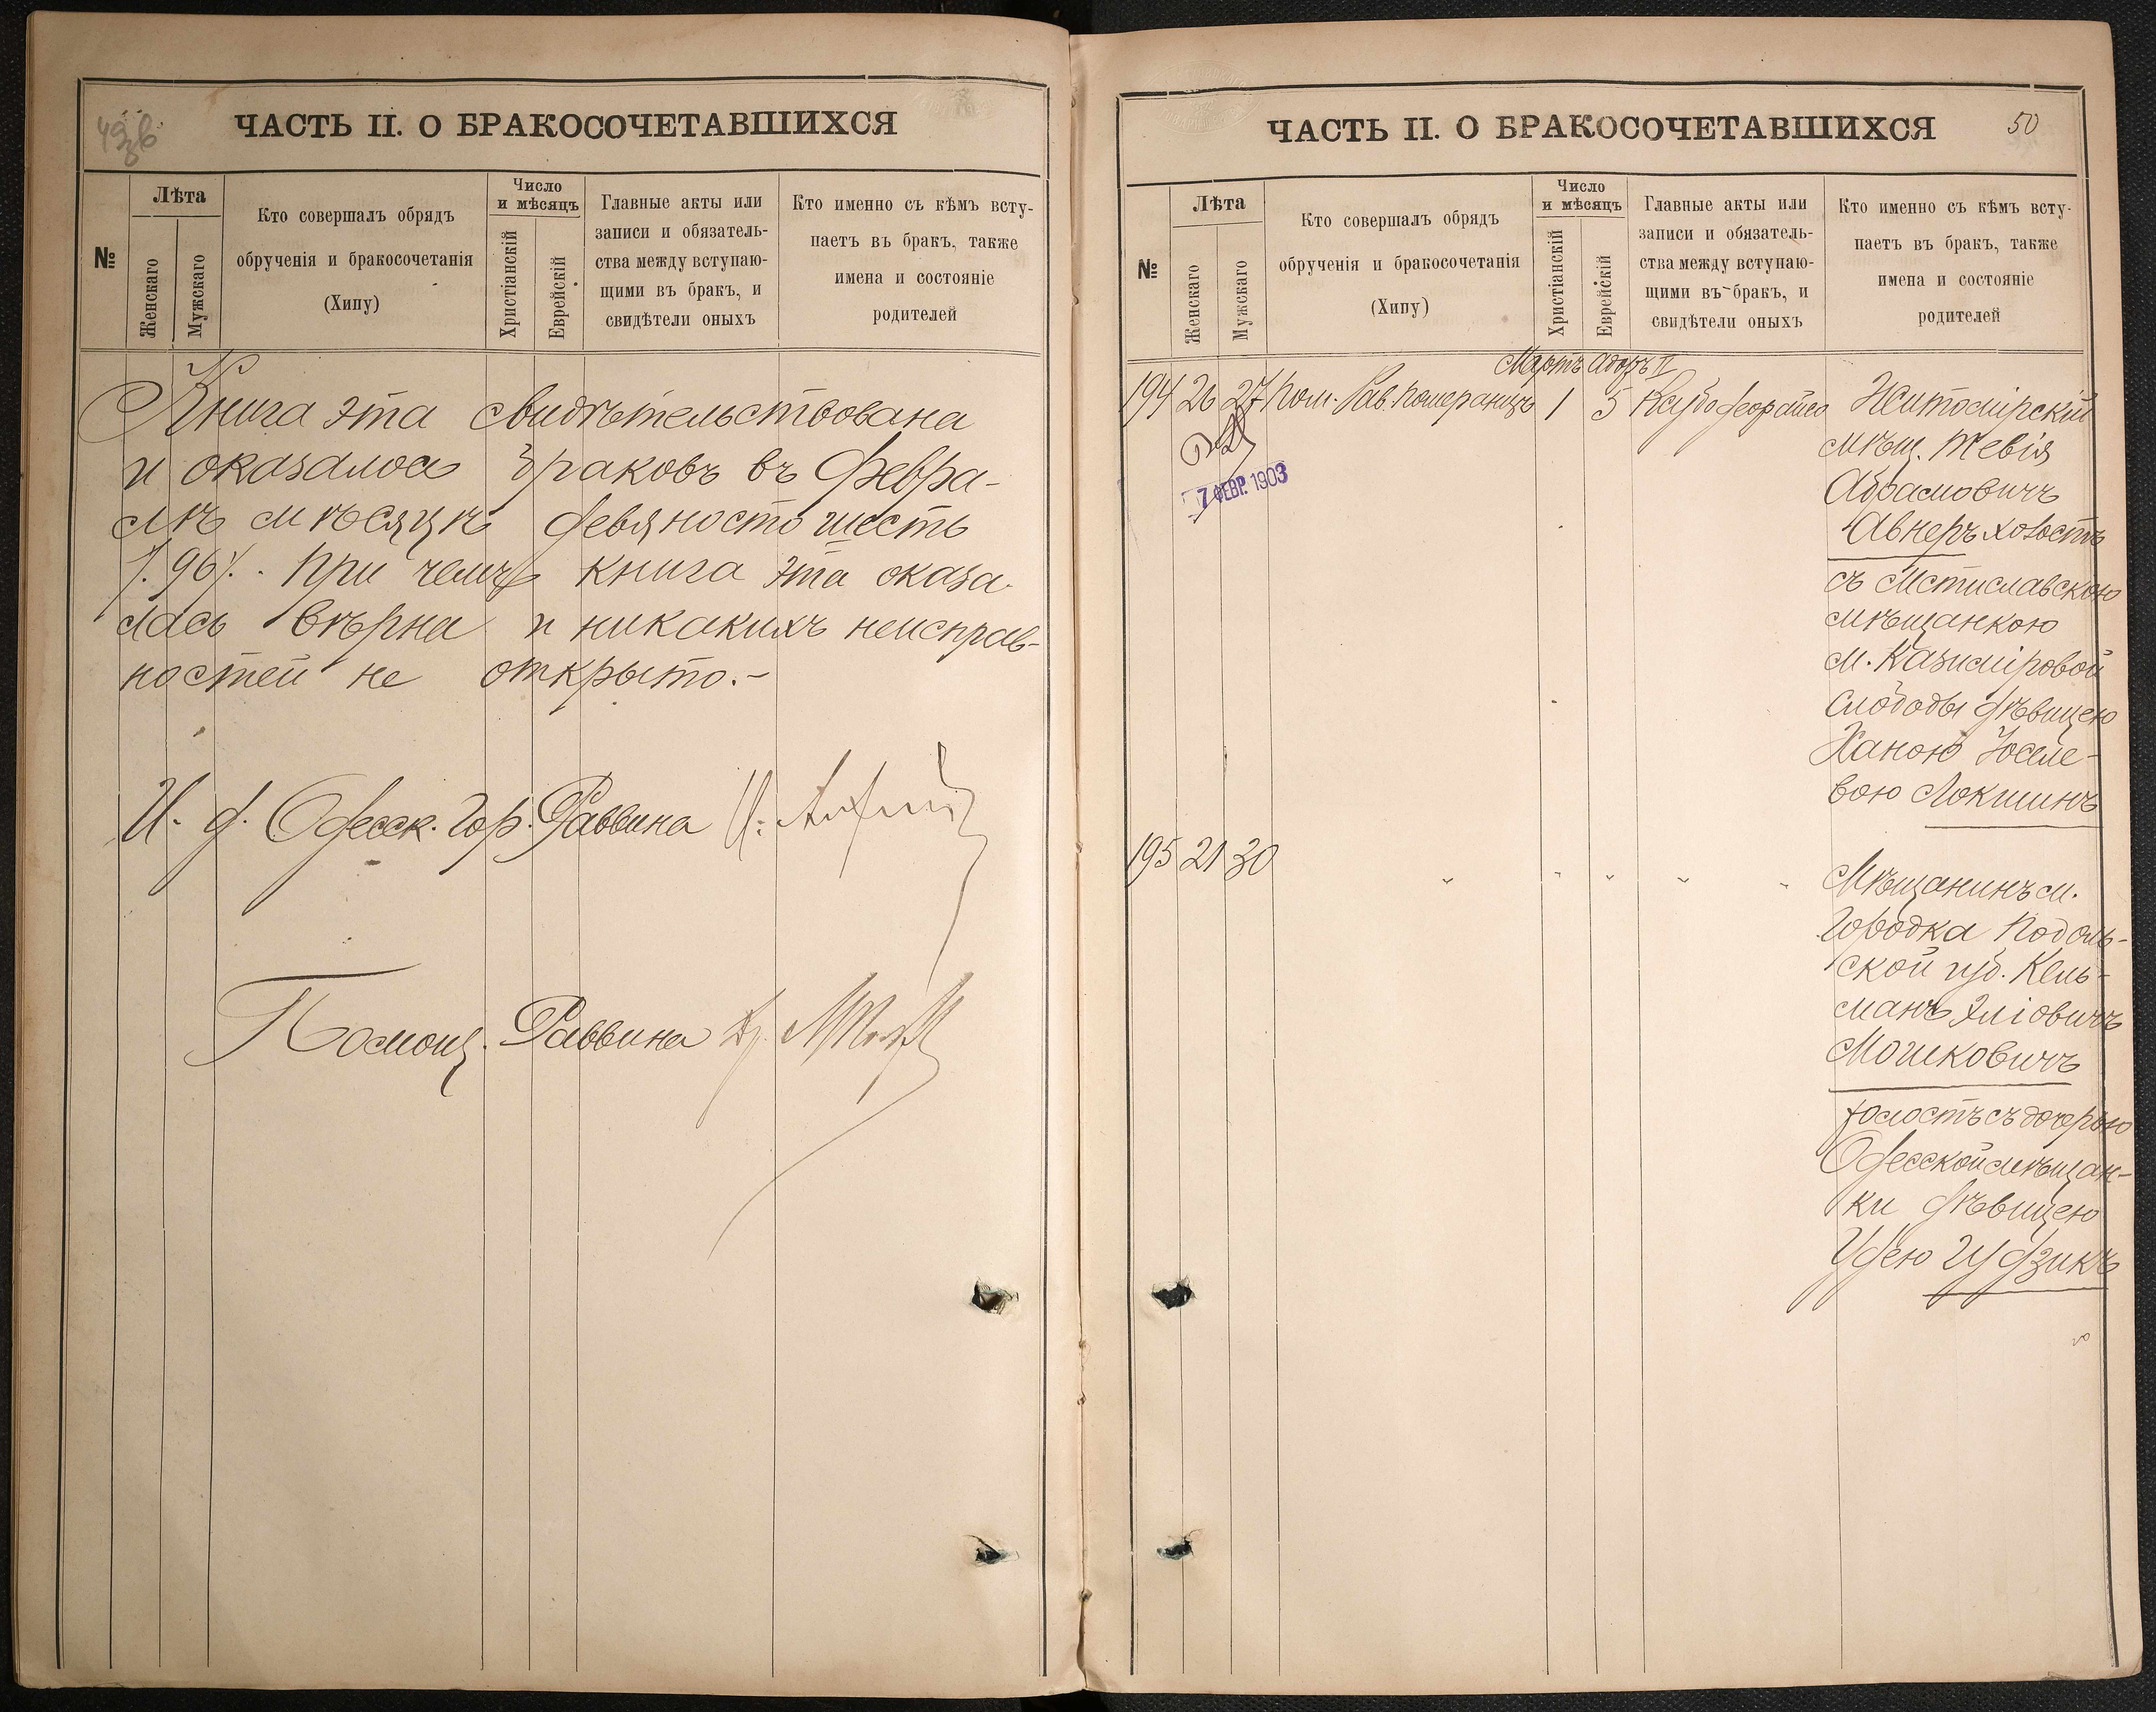 ЧАСТЬ II. О БРАКОСОЧЕТАВШИХСЯ
№
Лѣта
Женскаго
Мужскаго
Кто совершалъ обрядъ
обрученія и бракосочетанія
(Хипу)
Число
и мѣсяцъ
Христіанскій
Еврейскій
Главные акты или
записи и обязатель-
ства между вступаю-
щими въ бракъ, и
свидѣтели оныхъ
Кто именно съ кѣмъ всту-
паетъ въ бракъ, также
имена и состояніе
родителей
Книга эта свидѣтельствована
и оказалось браковъ въ Февра-
лѣ мѣсяцѣ девяносто шесть
/. 96/. При чемъ книга эта оказа-
лась вѣрна и никакихъ неисправ-
ностей не открыто.-
И. д. Одесск. Гор. Раввина
Помощ. Раввина
ЧАСТЬ II. О БРАКОСОЧЕТАВШИХСЯ
50
№
Лѣта
Женскаго
Мужскаго
Кто совершалъ обрядъ
обрученія и бракосочетанія
(Хипу)
Число
и мѣсяцъ
Христіанскій
Еврейскій
Главные акты или
записи и обязатель-
ства между вступаю-
щими въ бракъ, и
свидѣтели оныхъ
Кто именно съ кѣмъ всту-
паетъ въ бракъ, также
имена и состояніе
родителей
Мартъ Адоръ II
194 26 27 Пом. Рав. Померанцъ 1 5
7 ФЕВР. 1903
Житомірскій
мѣщ. Тевія
Абрамовичъ
Авнеръ холостъ
съ Мстиславскою
мѣщанкою
м. Казиміровой
Слободы дѣвицею
Ханою Іоселе-
вою Локшинъ
195 21 30 " " " " "
Мѣщанинъ м.
Городка Подоль-
ской губ. Кель-
манъ Эліовичъ
Мошковичъ
холостъ съ дочерью
Одесской мѣщан-
ки дѣвицею
Удею Гудзикъ